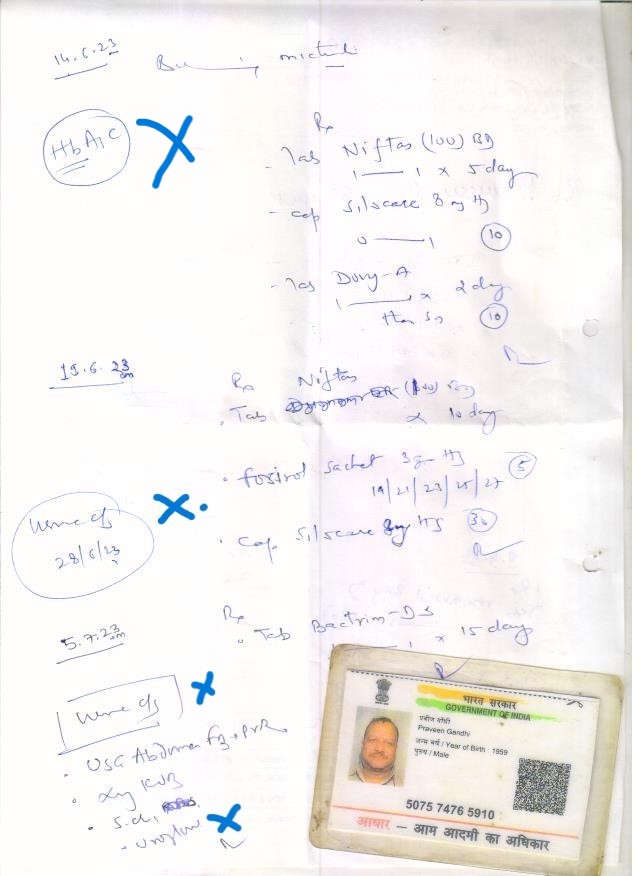 14.6.23
Burning mictu
HbA1C
Rx
- Tab Niftas (100) BD
1 — 1 x 5 day
- cap Silscare 8 mg HS
0 — 1 (10)
- Tab Dovy-A
1 — x 2 day
then SOS (10)
19.6.23
Rx Niftas
Tab (100) BD
x 10 day
fosirol sachet 3g HS (5)
19/21/23/25/27
Urine c/s
28/6/23
cap Silscare 8mg HS (30)
5.7.23
Rx
Tab Bactrim-DS
1 x 15 day
Urine c/s
USG Abdomen + PVR
Xray KUB
S.
भारत सरकार
GOVERNMENT OF INDIA
Praveen Gandhi
जन्म वर्ष / Year of Birth : 1959
पुरुष / Male
5075 7476 5910
आधार – आम आदमी का अधिकार